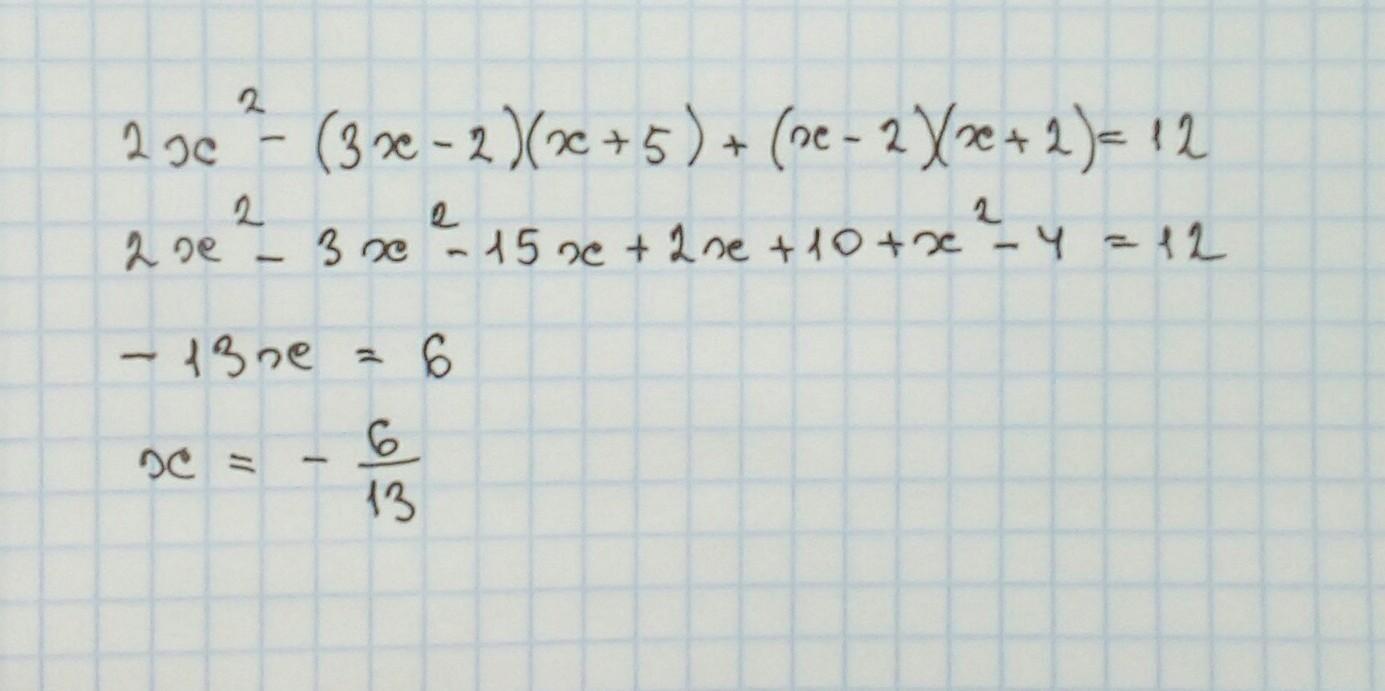 2x² - (3x - 2)(x + 5) + (x - 2)(x + 2) = 12
2x² - 3x² - 15x + 2x + 10 + x² - 4 = 12
- 13x = 6
x = - 6/13